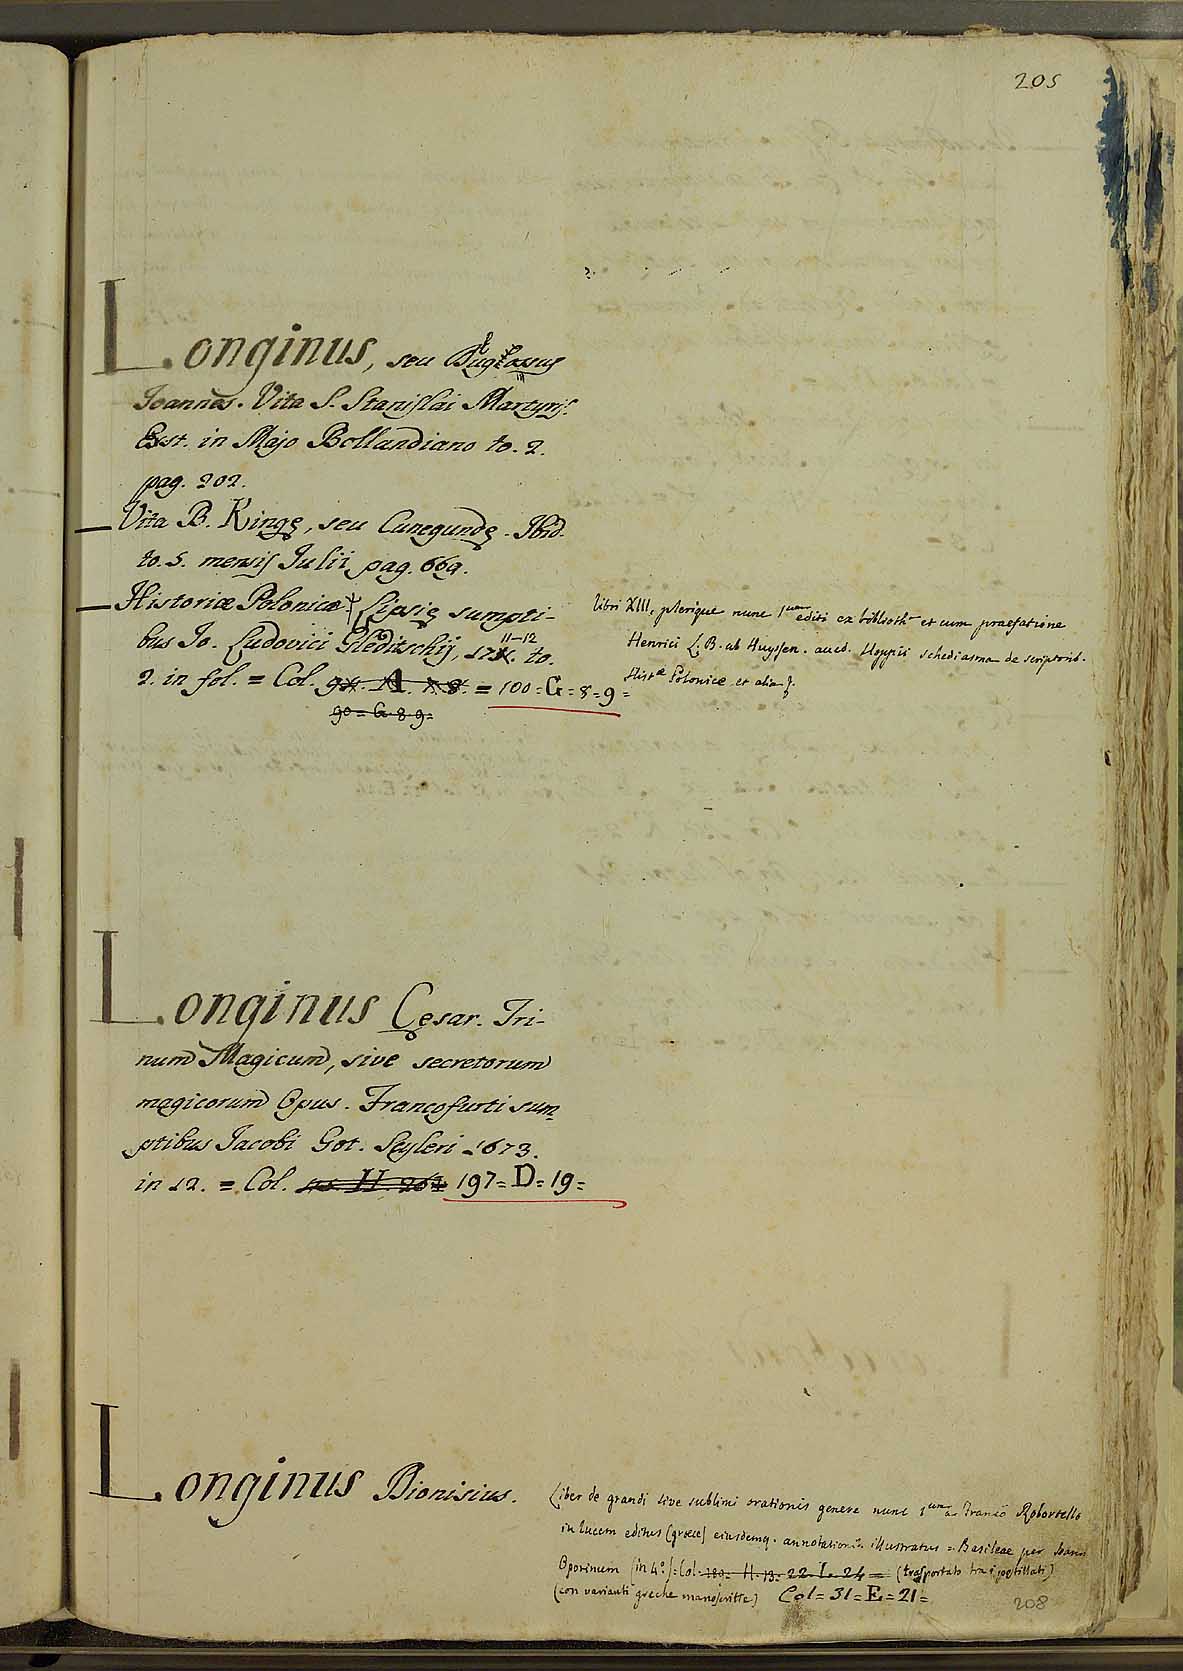 205
Longinus, seu Dugłossus
Joannes. Vita S. Stanislai Martyris.
Exst. in Majo Bollandiano to. 2.
pag. 202.
Vita B. Kingę, seu Cunegundę. Ibid.
to. 5. mensis Julii pag. 669.
Historiæ Polonicæ Lipsię sumpti-
bus Jo. Ludovici Gleditschij, 1711-12 to.
2. in fol. = Col. = 100 = G = 8 = 9 =
90 = G. 8. 9 =
libri XIII, plerique nunc 1um editi ex biblioth. et cum praefatione
Henrici L. B. ab Huyssen. acced. Hoppii schediasma de scriptorib.
Histæ Polonicæ et alia
Longinus Cęsar. Tri-
num Magicum, sive secretorum
magicorum Opus. Francofurti sum
ptibus Jacobi Got. Seyleri 1673.
in 12. = Col. 197 = D = 19 =
Longinus Dionisius.
Liber de grandi sive sublimi orationis genere nunc 1um a Franco Robortello
in lucem editus (graece) eiusdemq. annotationib. illustratus = Basileae per Joann
Oporinum (in 4°.) = Col. 180 = H. 13 = 22. L. 24 = (trasportato tra i postillati)
(con varianti greche manoscritte) Col = 31 = E = 21 =
208